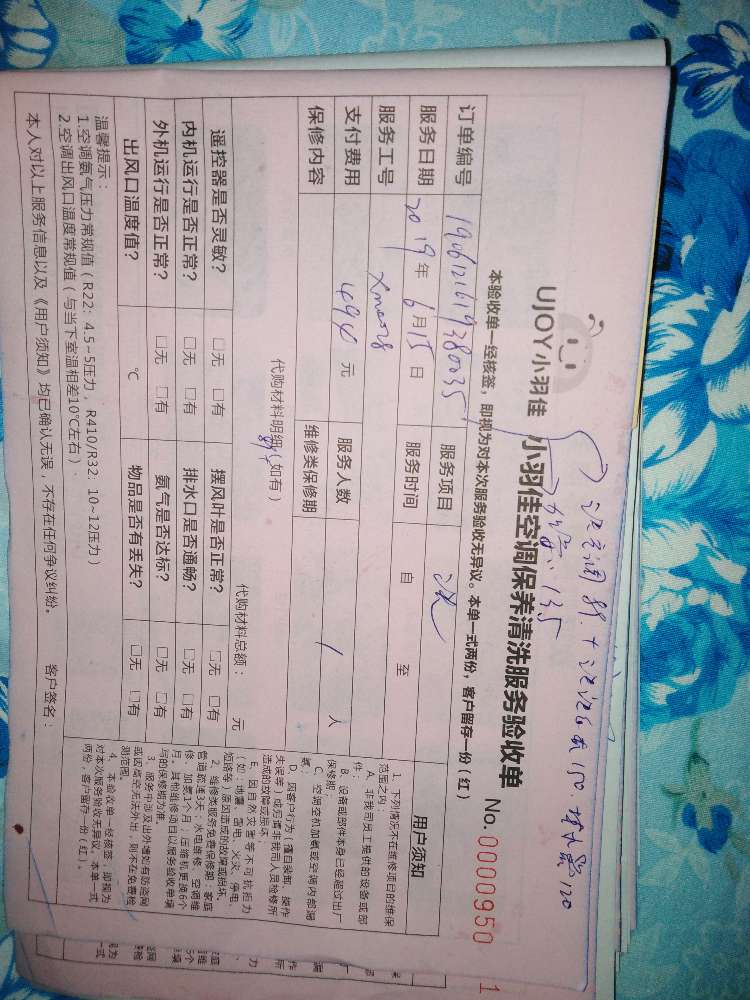 洗空调 88.+ 150 120
135
UJOY小羽佳
小羽佳空调保养清洗服务验收单
No.0000950
本验收单一经核签，即视为对本次服务验收无异议。本单一式两份，客户留存一份（红）
订单编号 服务项目 洗
服务日期 2019年6月15日 服务时间 自 至
服务工号
支付费用 494 元 服务人数 1 人
保修内容 维修类保修期
代购材料明细(如有)
代购材料总额： 元
遥控器是否灵敏？ □无 □有 摆风叶是否正常？ □无 □有
内机运行是否正常？ □无 □有 排水口是否通畅？ □无 □有
外机运行是否正常？ □无 □有 氨气是否达标？ □无 □有
出风口温度值？ ℃ 物品是否有丢失？ □无 □有
温馨提示：
1.空调氨气压力常规值（R22：4.5~5压力，R410/R32：10~12压力）
2.空调出风口温度常规值（与当下室温相差10℃左右）
本人对以上服务信息以及《用户须知》均已确认无误，不存在任何争议纠纷。 客户签名：
用户须知
1、下列情况不在维修项目的维保
范围之内：
A、非我司员工提供的设备或部
件；
B、设备或部件本身已经超过出厂
保修期；
C、空调空机加氨或空调内部漏
氨；
D、因客户行为（擅自装卸、操作
失误等）或归责非我司人员检修所
造成的故障或损坏。
E、因自然灾害等不可抗拒力
（如：地震、雷电、火灾、停电、
短路等）原因造成的故障或损坏。
2、维修类服务免费保修期：家庭
管道疏通3天；水电维修、空调维
修、加氨1个月；压缩机更换6个
月。其他维修项目以服务验收单填
写的保修期为准。
3、服务中涉及出外墙如有防盗网
或因高空无法外出，则不存在免费检
测范围。
4、本验收单一经核签，即视为
对本次服务验收无异议。本单一式
两份，客户留存一份（红）。